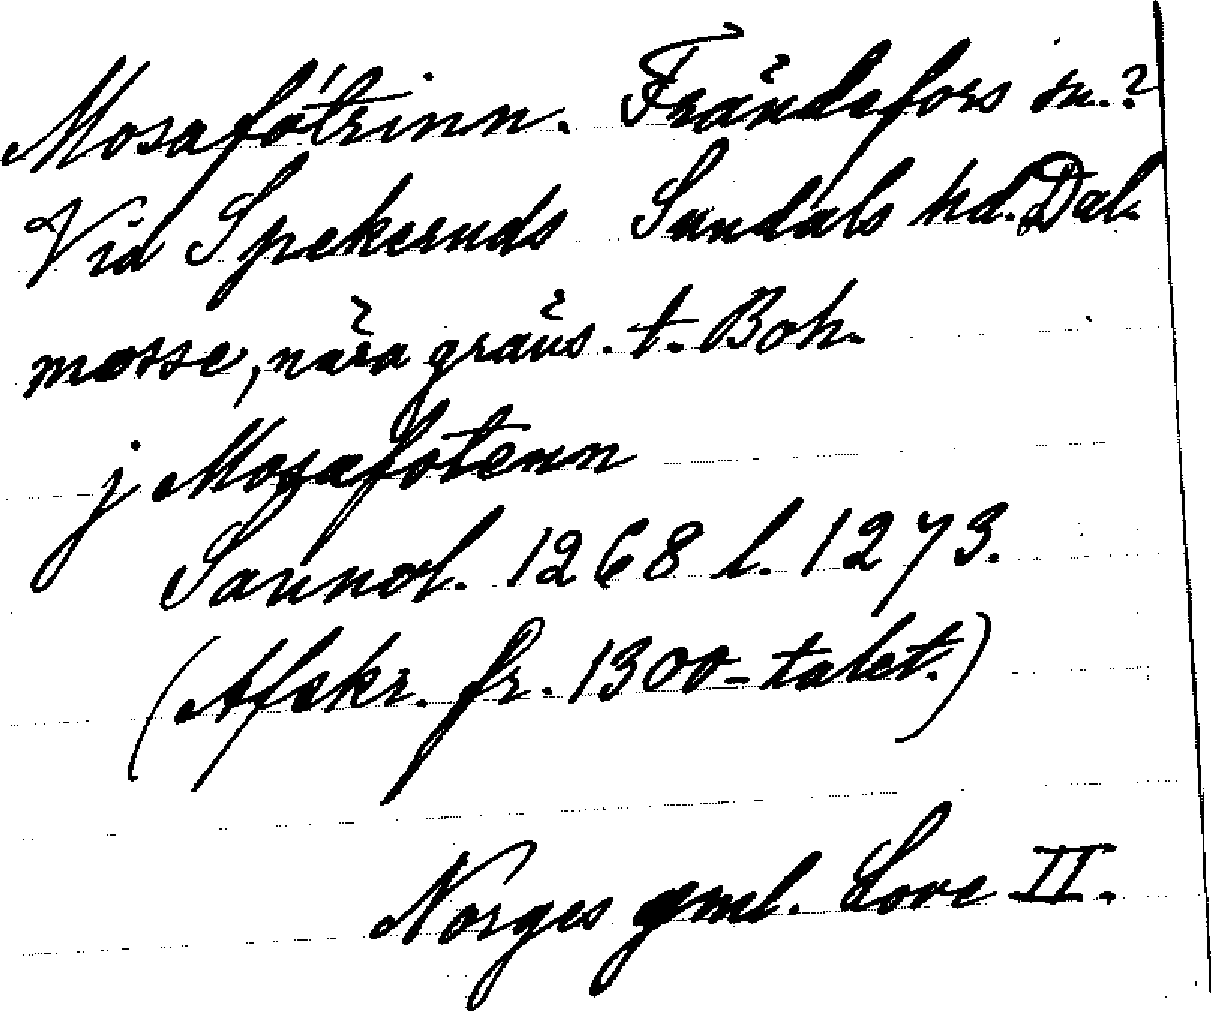 Mosafótrinn. Frändefors sn.?
Vid Spekeruds Sundals hd. Dal.
mosse, nära gräns. t. Boh.
j Mosafotenn
Sannol. 1268 l. 1273.
(Afskr. fr. 1300-talet.)
Norges gml. Love II.